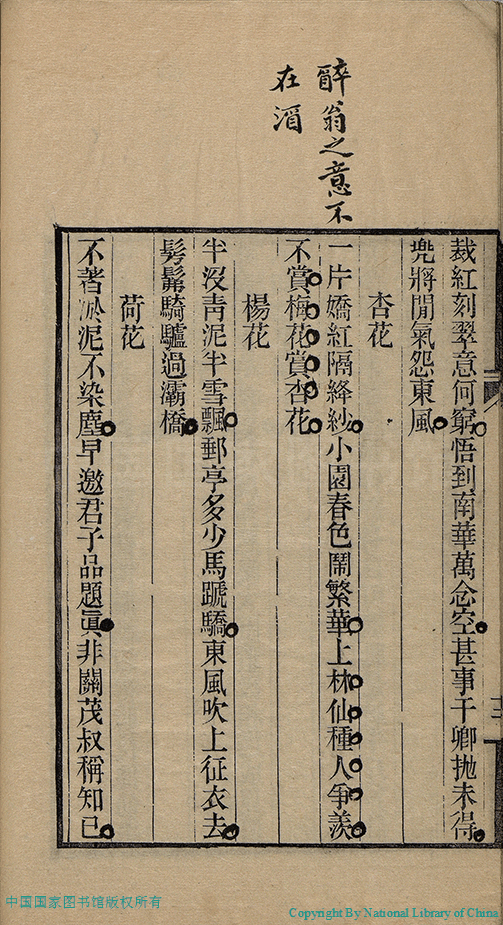 醉翁之意不
在酒
裁紅刻翠意何窮悟到南華萬念空甚事干卿抛未得
兜將閒氣怨東風
杏花
一片嬌紅隔絳紗小園春色鬧繁華上林仙種人爭羨
不賞梅花賞杏花
楊花
半沒靑泥半雪飄郵亭多少馬蹏驕東風吹上征衣去
髣髴騎驢過灞橋
荷花
不著淤泥不染塵早邀君子品題眞非關茂叔稱知已
中国国家图书馆版权所有
Copyright By National Library of China